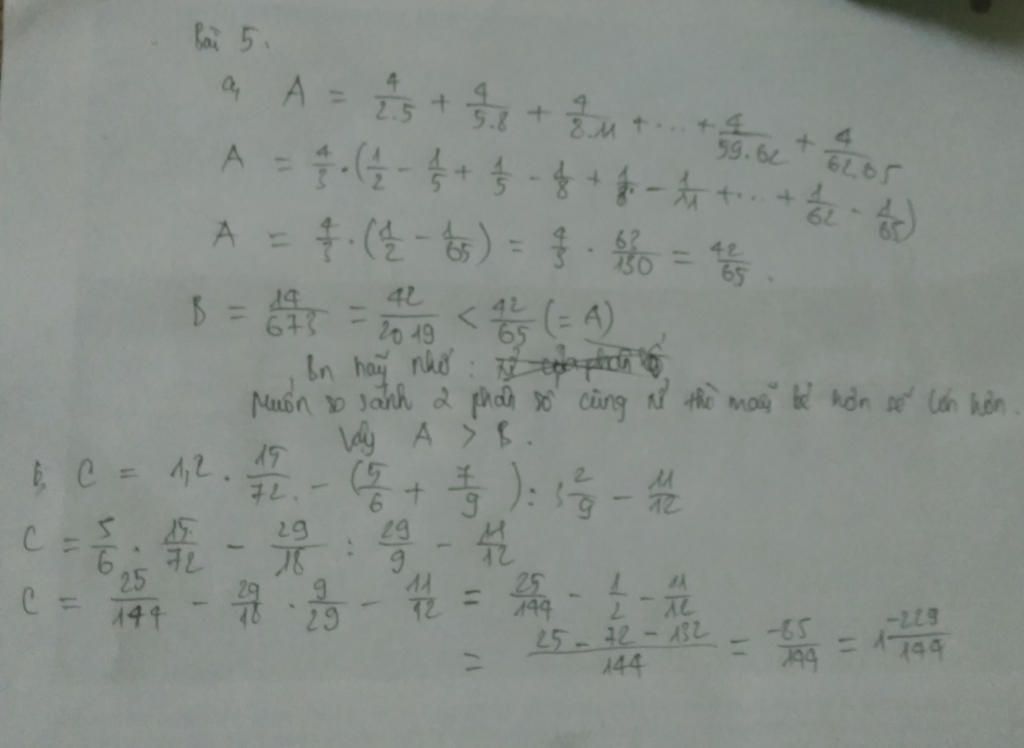 Bài 5.
a, A = 4/2.5 + 4/5.8 + 4/8.11 + ... + 4/59.62 + 4/62.65
A = 4/3 . (1/2 - 1/5 + 1/5 - 1/8 + 1/8 - 1/11 + ... + 1/62 - 1/65)
A = 4/3 . (1/2 - 1/65) = 4/3 . 63/130 = 42/65.
B = 14/673 = 42/2019 < 42/65 (= A)
Bn hãy nhớ:
Muốn so sánh 2 phân số cùng tử thì mẫu bé hơn số lớn hơn.
Vậy A > B.
b, C = 1,2 . 15/72 - (5/6 + 7/9) : 3 2/9 - 11/12
C = 5/6 . 15/72 - 29/18 : 29/9 - 11/12
C = 25/144 - 29/18 . 9/29 - 11/12 = 25/144 - 1/2 - 11/12
= 25 - 72 - 132/144 = -85/144 = 1 -229/144